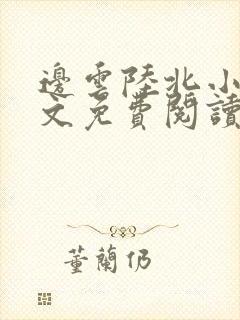 邊雲陸北小
文免費閱讀
董蘭仍